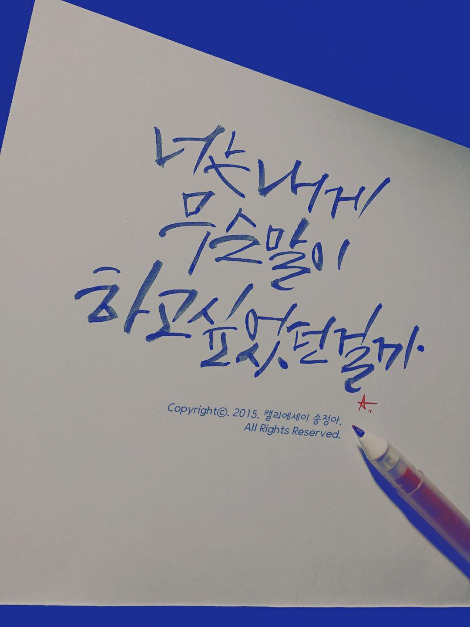 너는 내게
무슨 말이
하고 싶었던 걸까.
Copyrightⓒ. 2015. 캘리에세이 송정아.
All Rights Reserved.